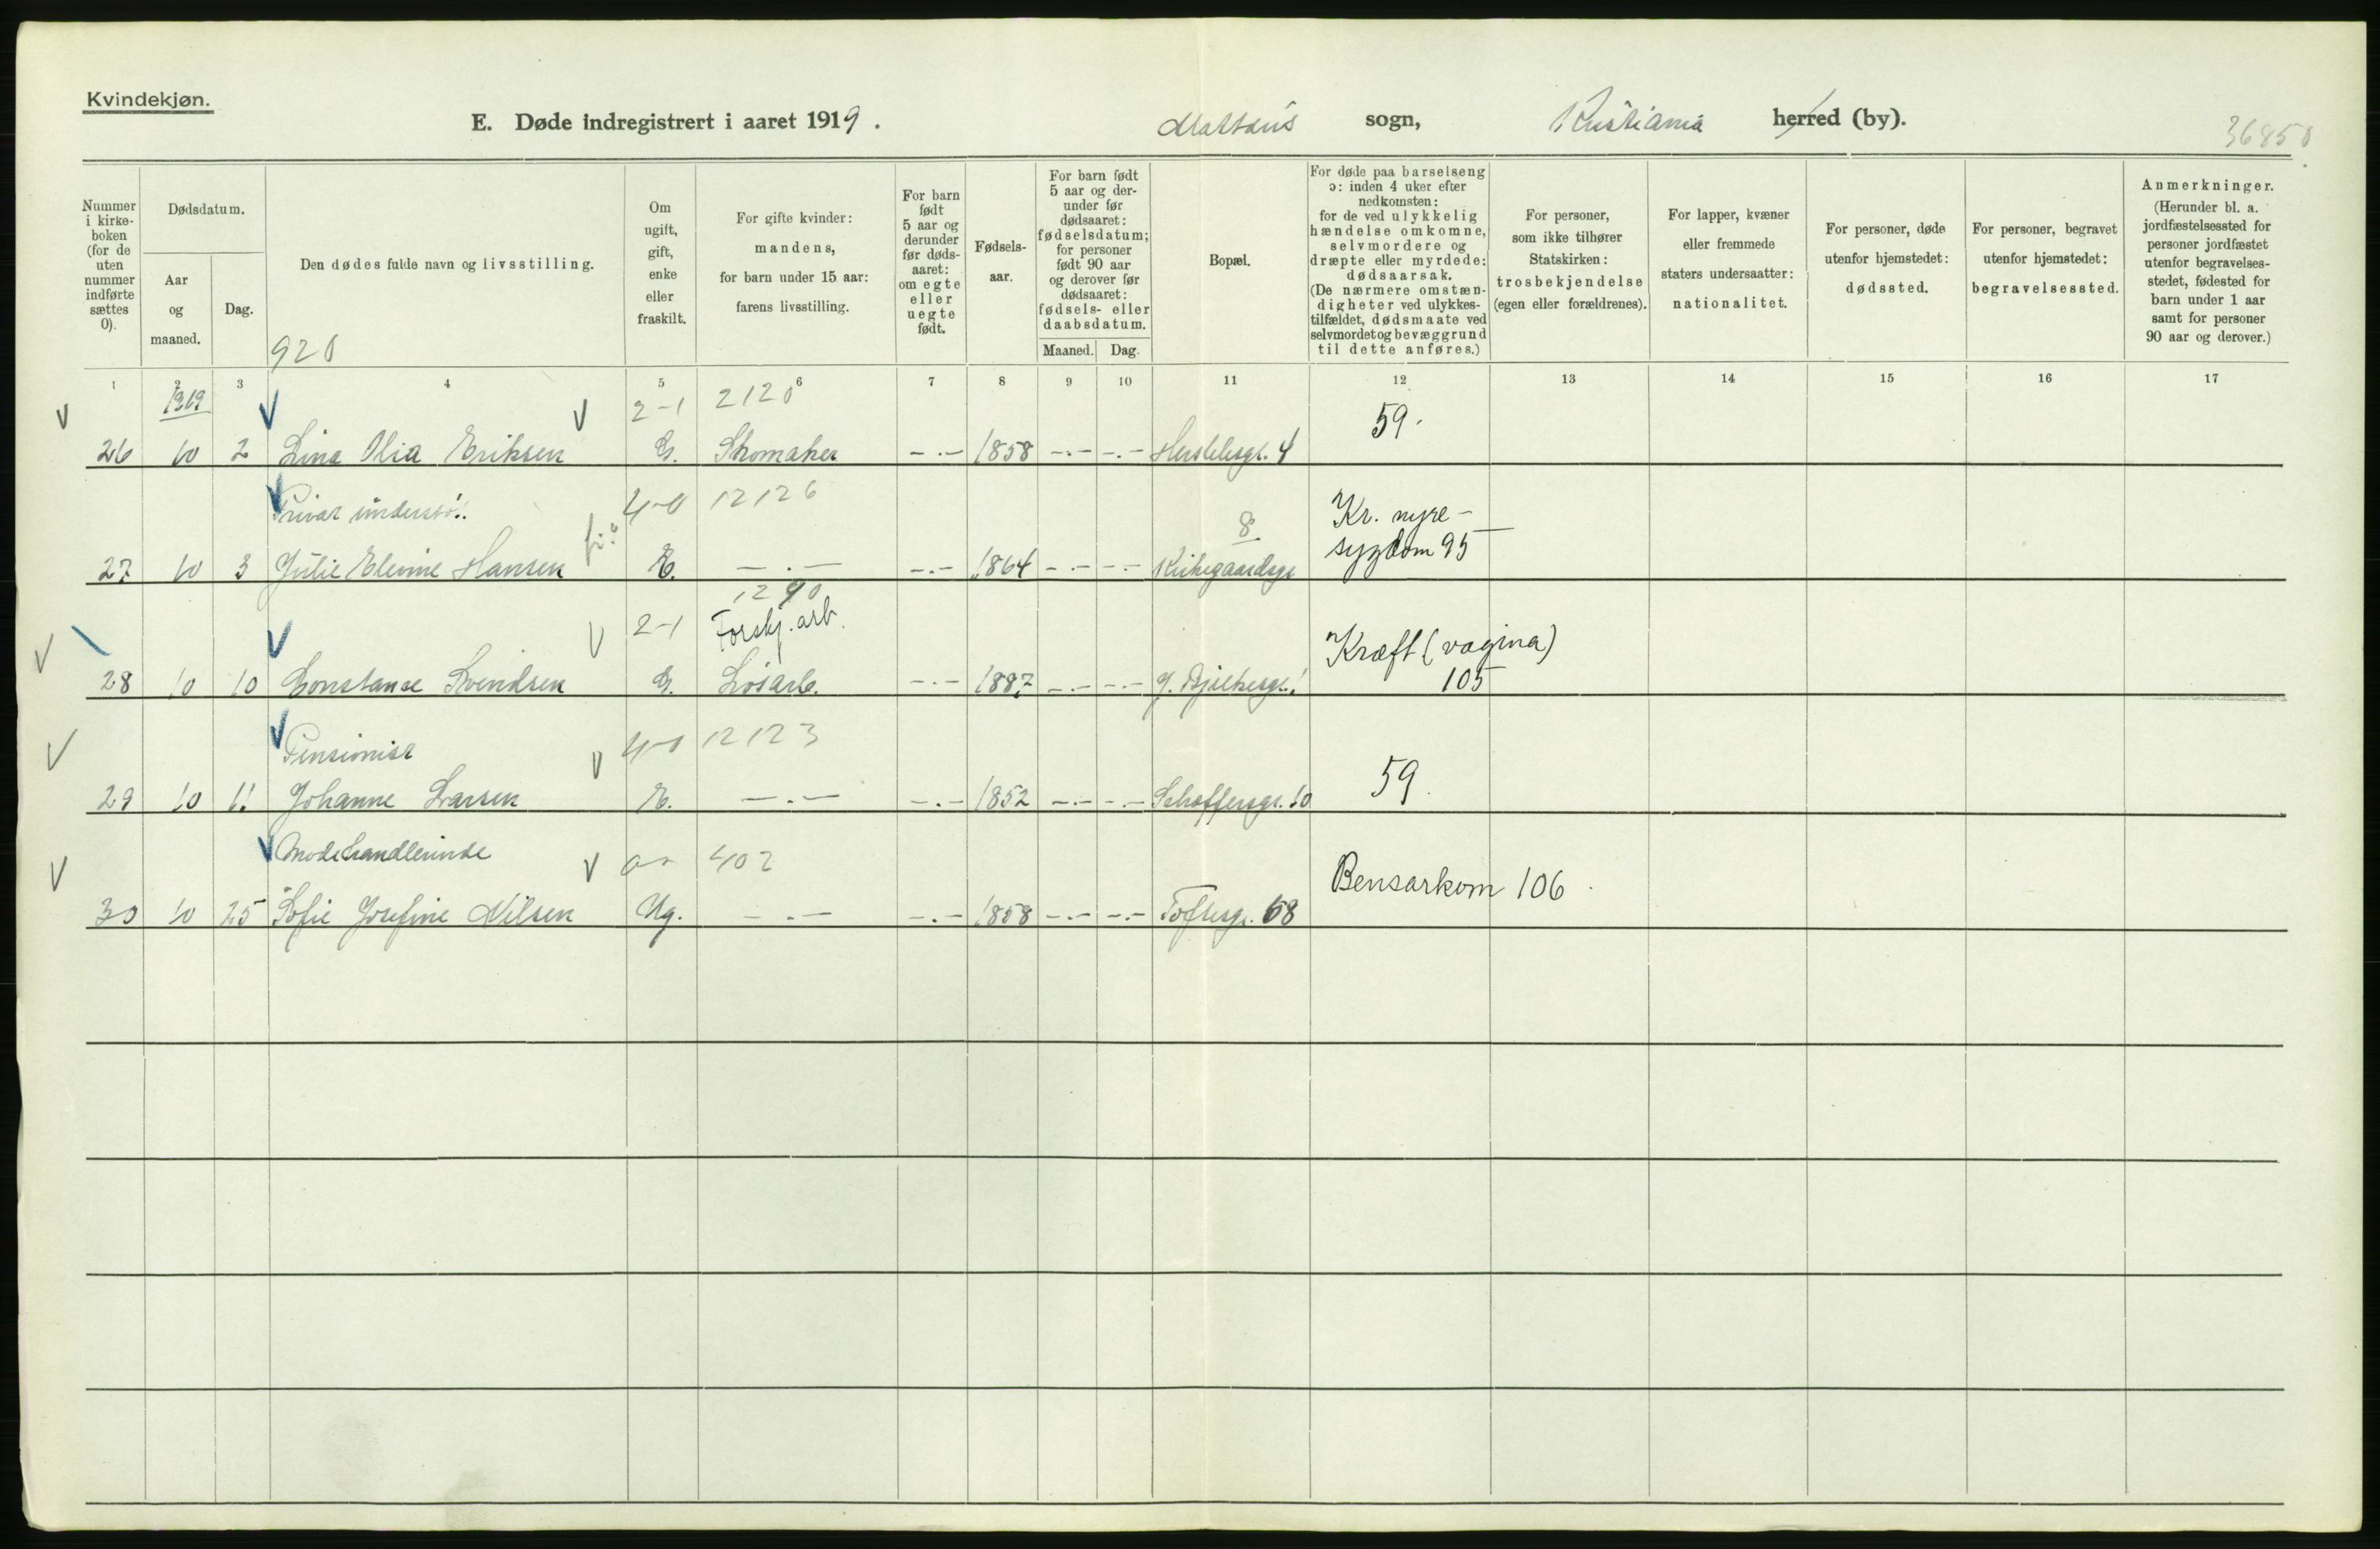 Kvindekjøn.
E. Døde indregistrert i aaret 1919. Mattæus sogn, Kristiania herred (by).
36850
Nummer i kirke-boken (for de uten nummer indførte sættes 0).
Dødsdatum.
Aar og maaned.
Dag.
Den dødes fulde navn og livsstilling.
920
Om ugift, gift, enke eller fraskilt.
For gifte kvinder: mandens, for barn under 15 aar: farens livsstilling.
For barn født 5 aar og derunder før døds-aaret: om egte eller uegte født.
Fødsels-aar.
For barn født 5 aar og der-under før dødsaaret: fødselsdatum; for personer født 90 aar og derover før dødsaaret: fødsels- eller daabsdatum.
Maaned. Dag.
Bopæl.
For døde paa barselseng ɔ: inden 4 uker efter nedkomsten: for de ved ulykkelig hændelse omkomne, selvmordere og dræpte eller myrdede: dødsaarsak. (De nærmere omstæn-digheter ved ulykkes-tilfældet, dødsmaate ved selvmordet og bevæggrund til dette anføres.)
For personer, som ikke tilhører Statskirken: trosbekjendelse (egen eller forældrenes).
For lapper, kvæner eller fremmede staters undersaatter: nationalitet.
For personer, døde utenfor hjemstedet: dødssted.
For personer, begravet utenfor hjemstedet: begravelsessted.
Anmerkninger. (Herunder bl. a. jordfæstelsessted for personer jordfæstet utenfor begravelses-stedet, fødested for barn under 1 aar samt for personer 90 aar og derover.)
1 2 3 4 5 6 7 8 9 10 11 12 13 14 15 16 17
1919 2-1 2120 59.
26 10 2 Lina Olia Eriksen G. Skomaker -.- 1858 -.- -.- Herslebsgt. 4
Privat understø. 4-0 12126 8 Kr. nyre-
sygdom 95
27 10 3 Julie Elenine Hansen E. -.- -.- 1864 -.- -.- Kirkegaardsgt
1290
2-1 Forskj. arb. Kræft (vagina)
28 10 10 Constanse Svendsen G. Løsarb. -.- 1887 -.- -.- 105
Pensionist 4-0 12123
29 10 11 Johanne Larsen E. -.- -.- 1852 -.- -.- Schoffersgt. 10 59.
Modehandlerinde 402
30 10 25 Sofie Josefine Nilsen Ug. -.- -.- 1858 -.- -.- Toftesgt. 68 Bensarkom 106